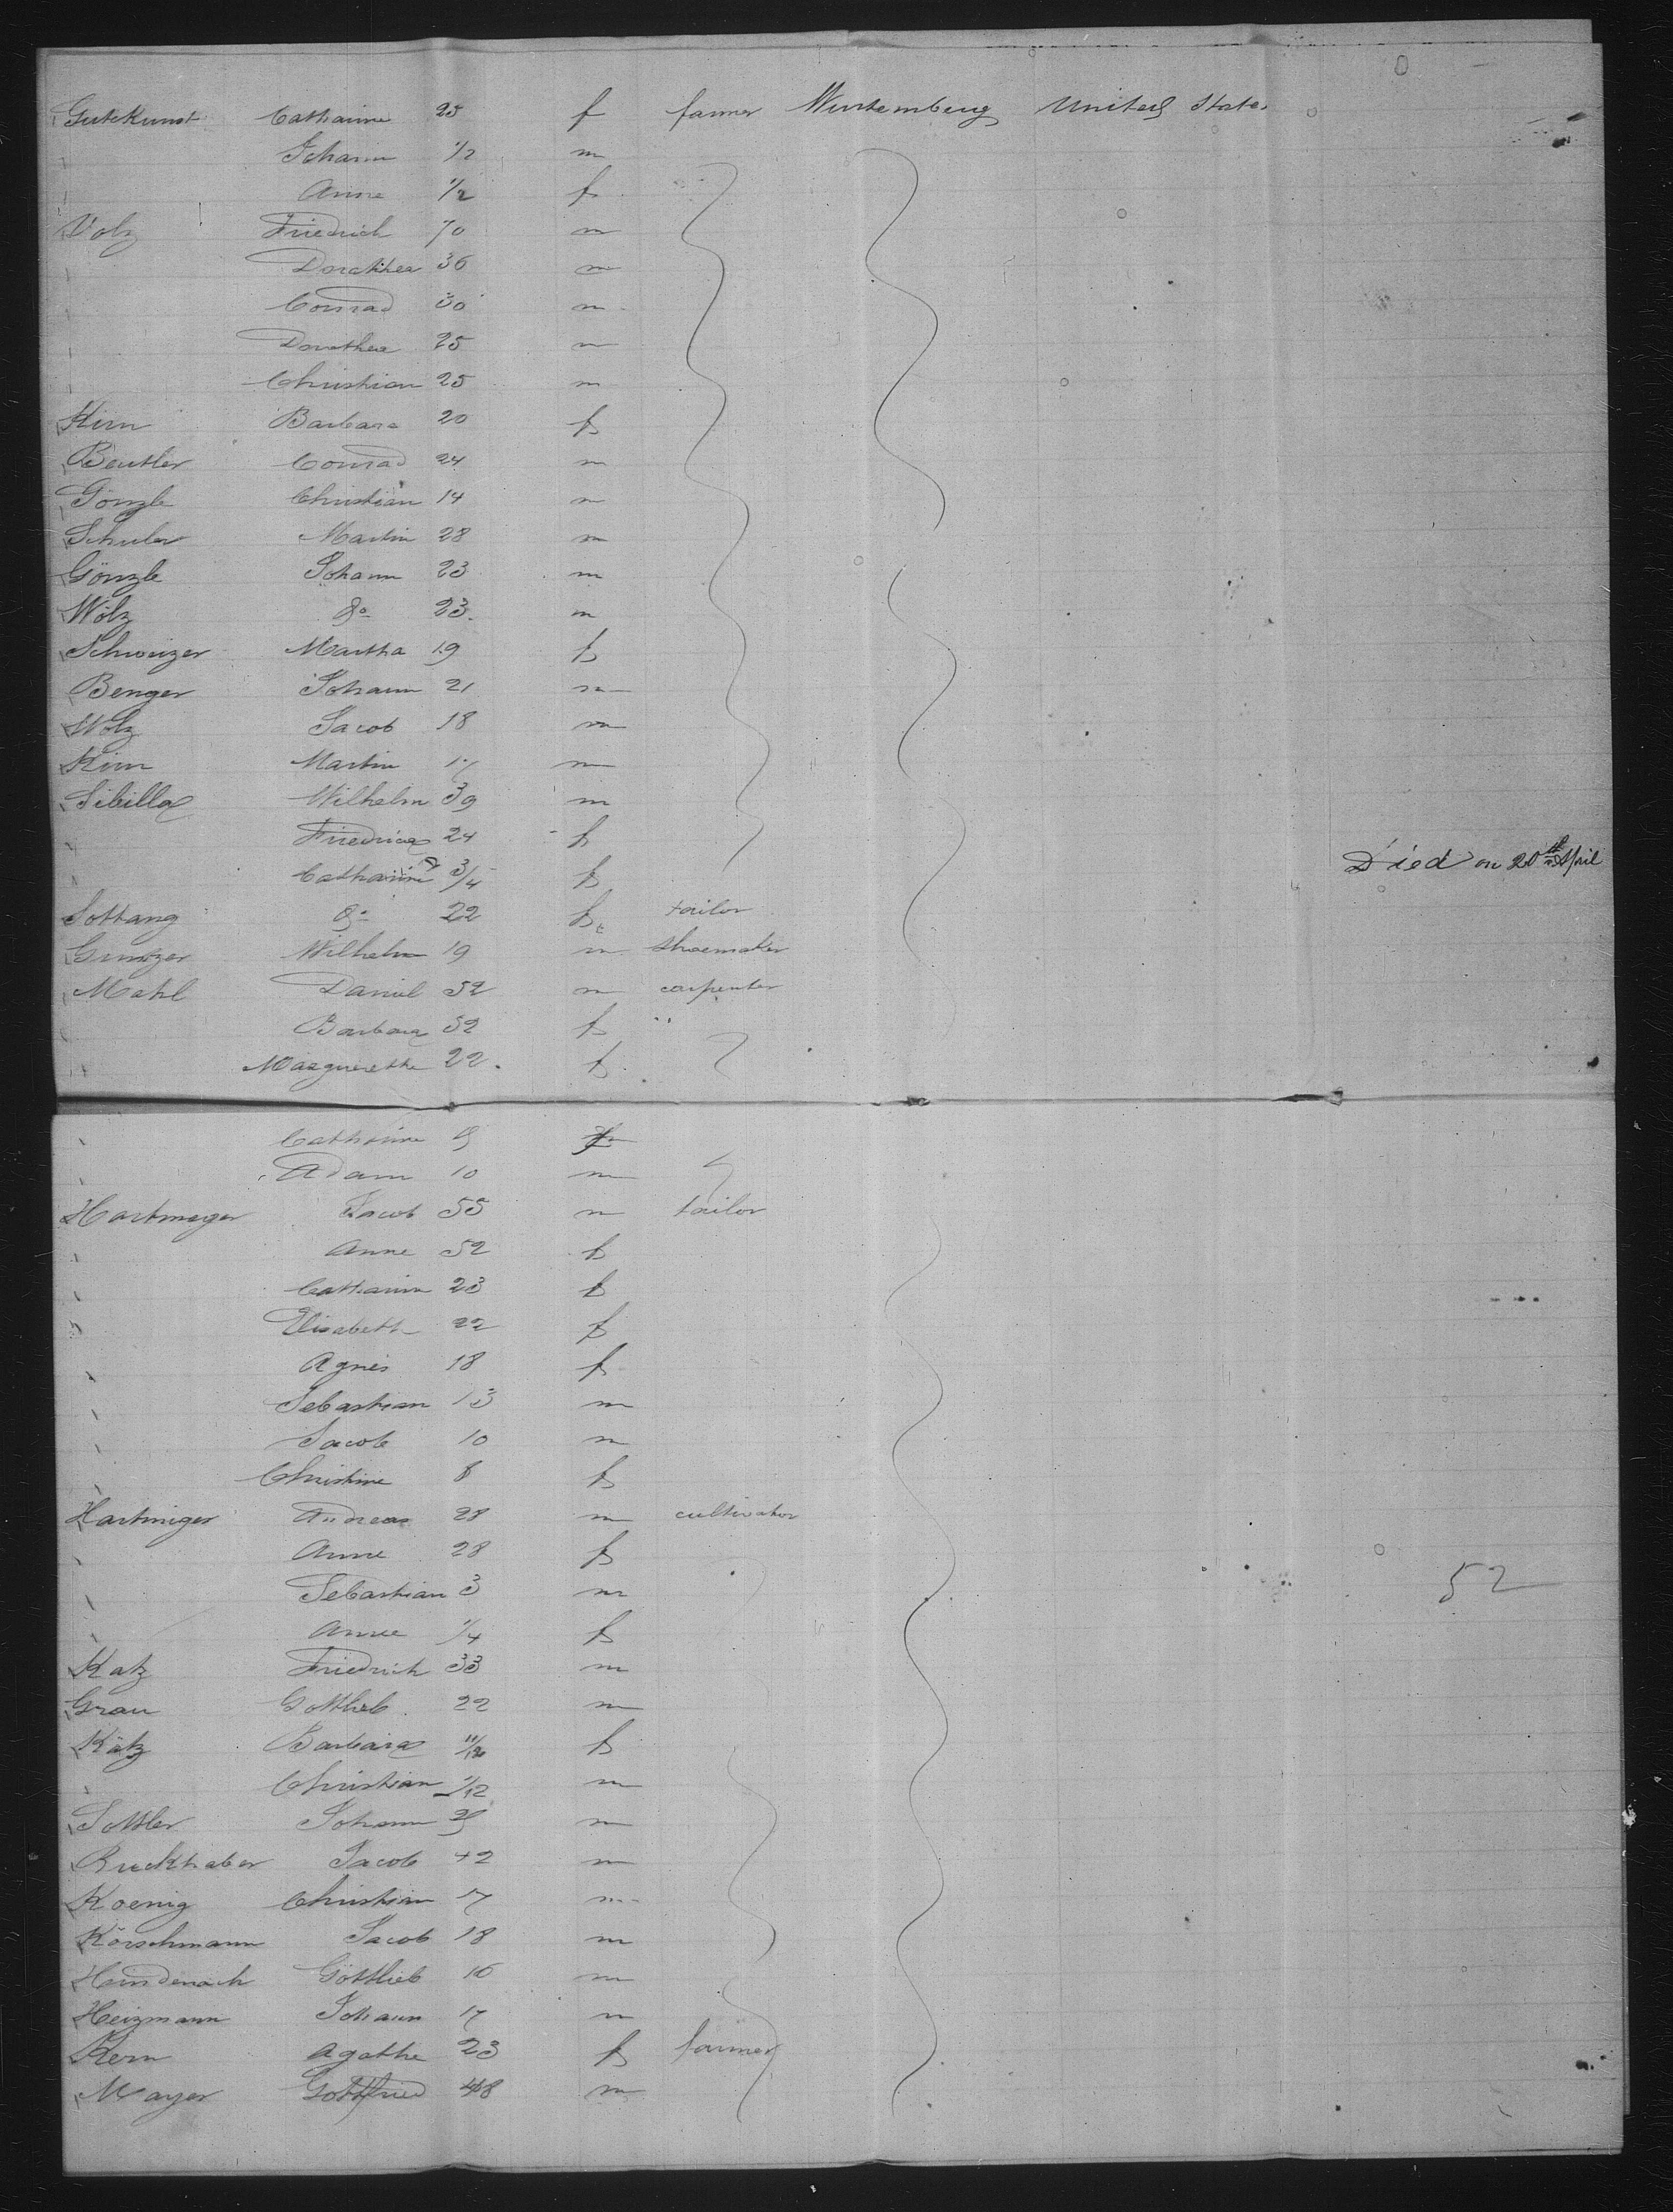 Gutekunst Catharine 25 f farmer Wurtemberg United States
" Johann 1/2 m
" Anne 1/2 f
Volz Friedrich 70 m
Dorothea 36 m
Conrad 30 m
" Dorothea 25 m
" Christian 25 m
Kirn Barbara 20 f
Beutler Conrad 24 m
Gönzle Christian 14 m
Schuler Martin 28 m
Gönzle Johann 23 m
Wölz do 23 m
Schweizer Martha 19 f
Benger Johann 21 m
Wölz Jacob 18 m
Kirn Martin 17 m
Sibilla Wilhelm 39 m
" Friedrica 24 f
" Catharine 3/4 f Died on 20th April
Sottang do 22 f tailor
Wilhelm 19 m shoemaker
Mahl Daniel 52 m carpenter
Barbara 52 f "
" Marguerethe 22 f
" Catharine f
" Adam 10 m
Hartmeyer Jacob 55 m tailor
" Anne 52 f
" Catharine 23 f
" Elisabeth 22 f
" Agnes 18 f
" Sebastian 13 m
" Jacob 10 m
" Christine 8 f
Hartmiger Andreas 28 m cultivator
" Anne 28 f
" Sebastian 3 m 52
" Anne 1/4 f
Katz Friedrich 33 m
Grau Gottlieb 22 m
Katz Barbara 11/12 f
" Christian 1/12 m
Sottler Johann m
Ruckhaber Jacob 42 m
Koenig Christian 17 m
Körschmann Jacob 18 m
Gottlieb 16 m
Heizmann Johann 17 m
Kern Agathe 23 f farmer
Mayer Gottfried 48 m